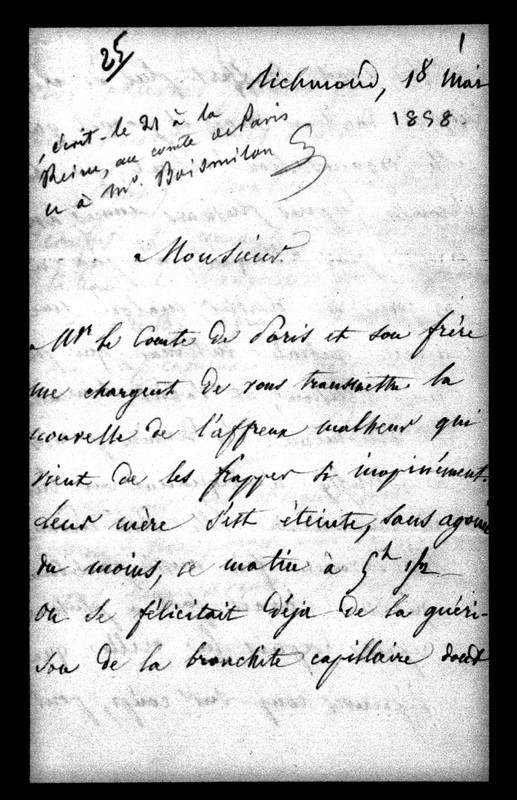 25
1
Richmond, 18 Mai
1858
écrit le 21 à la
Reine, au comte de Paris
et à Mr. Boismilon
Monsieur
Mgr le Comte de Paris et son frère
me chargent de vous transmettre la
nouvelle de l'affreux malheur qui
vient de les frapper si inopinément.
Leur mère s'est éteinte, sans agonie
du moins, ce matin à 5h 1/2
On se félicitait déjà de la guéri-
son de la bronchite capillaire dont